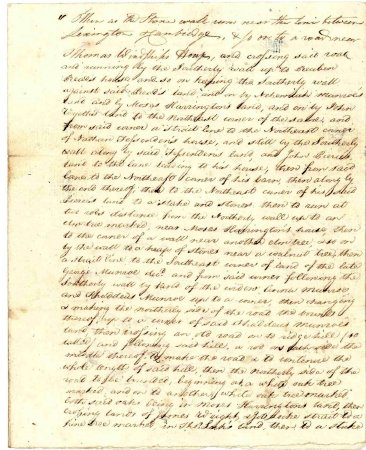 " Then as the Stone wall runs near the line between
Lexington & Cambridge, & so on to a road near
Thomas Winships House, and crossing said road
and running by the Southerly wall up to Reuben
Reeds house, and so on keeping the Southerly wall
against said Reeds land, and on by Nehemiah Munroes
land and by Moses Harringtons land, and on by John
land to the Northeast corner of the same, and
from said corner a strait line to the Northeast corner
of Nathan Fessendens house, and still by the Northerly
wall along by said Fessendens land and John
land to the lane leading to his house, then from said
lane to the Northeast corner of his barn, then along by
the end thereof, then to the Northeast corner of his said
land to a stake and stones then to run at
two rods distance from the Northerly wall up to an
elm tree marked, near Moses Harringtons house, then
to the corner of a wall near another elm tree, so on
by the wall to a heap of stones near a walnut tree, then
a strait line to the Southeast corner of land of the late
George Munroe decd and from said corner following the
Southerly wall by land of the widow Anna Munroe
and Thaddeus Munroe up to a corner, then changing
& making the northerly side of the road the bounds
thereof, up to a corner of said Thaddeus Munroes
land then crossing an old road on to ridge hill (so
called) and following said hill, a rod on each side the
middle thereof, to make the road & to continue the
whole length of said hill, then the northerly side of the
road to be bounded, beginning at a white oak tree
marked, and on to another white oak tree marked
both said oaks being in Moses Harringtons land, then
crossing lands of James Wright, strait to a
pine tree marked in land, then to a stake